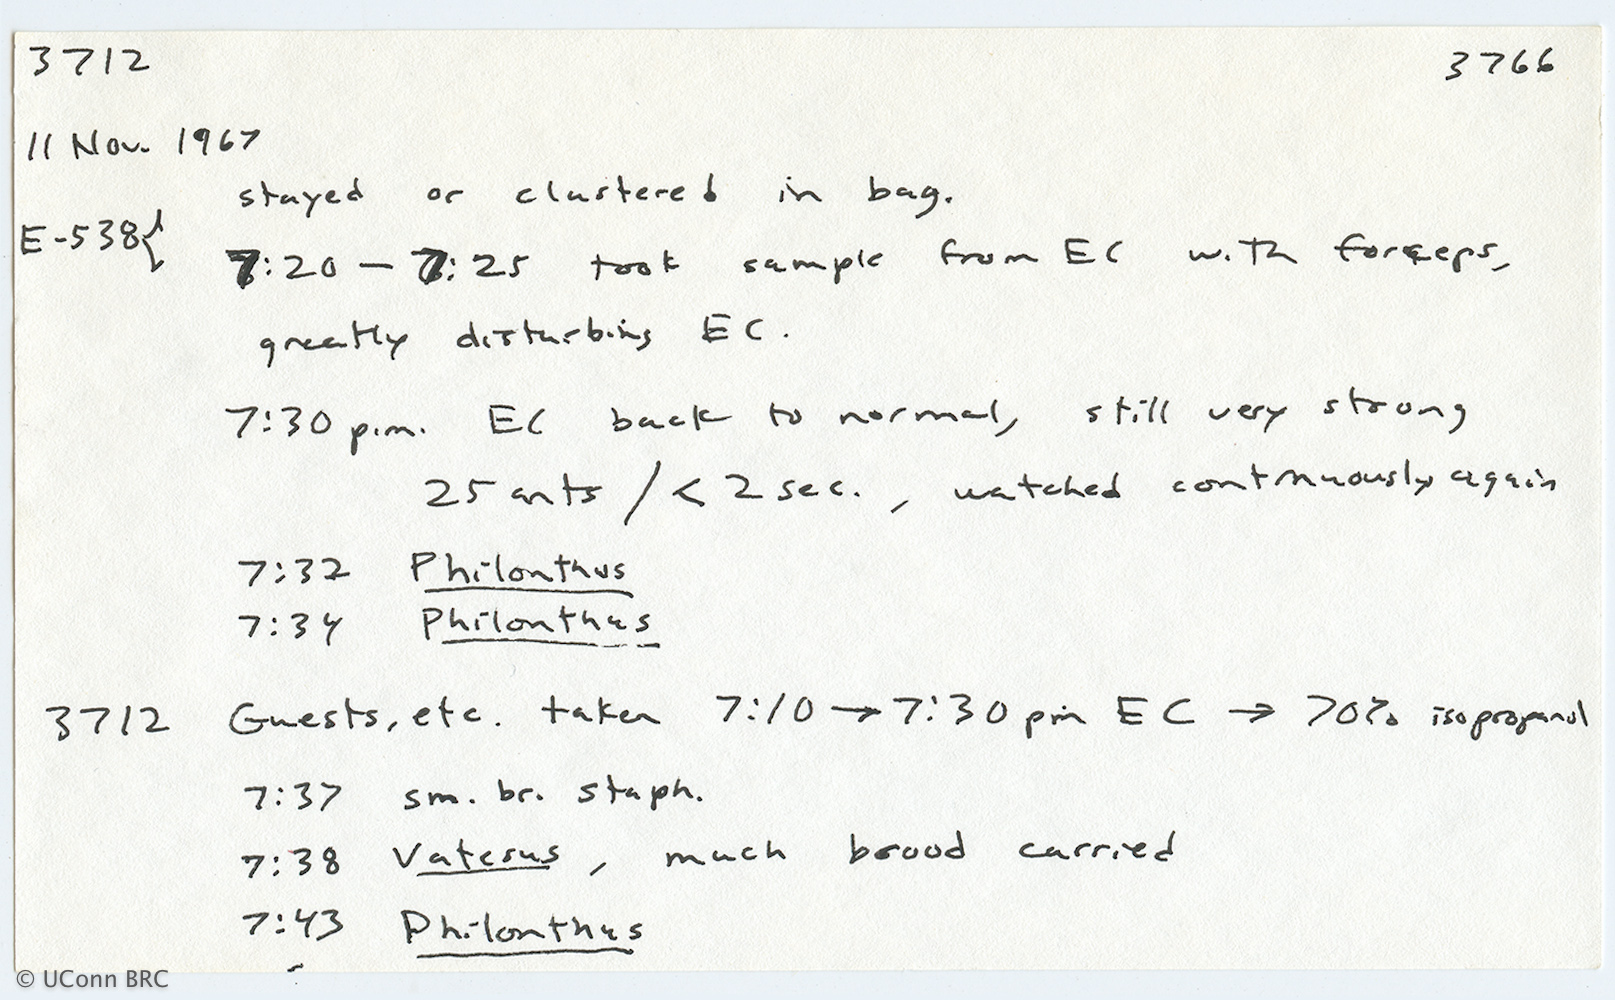 3712 3766
11 Nov. 1967
stayed or clustered in bag.
E-538{
7:20 — 7:25 took sample from EC with forceps,
greatly disturbing EC.
7:30 p.m. EC back to normal, still very strong
25 ants / < 2 sec. , watched continuously again
7:32 Philonthus
7:34 Philonthus
3712 Guests, etc. taken 7:10 → 7:30 pm EC → 70% isopropanol
7:37 sm. br. staph.
7:38 Vatesus, much brood carried
7:43 Philonthus
© UConn BRC